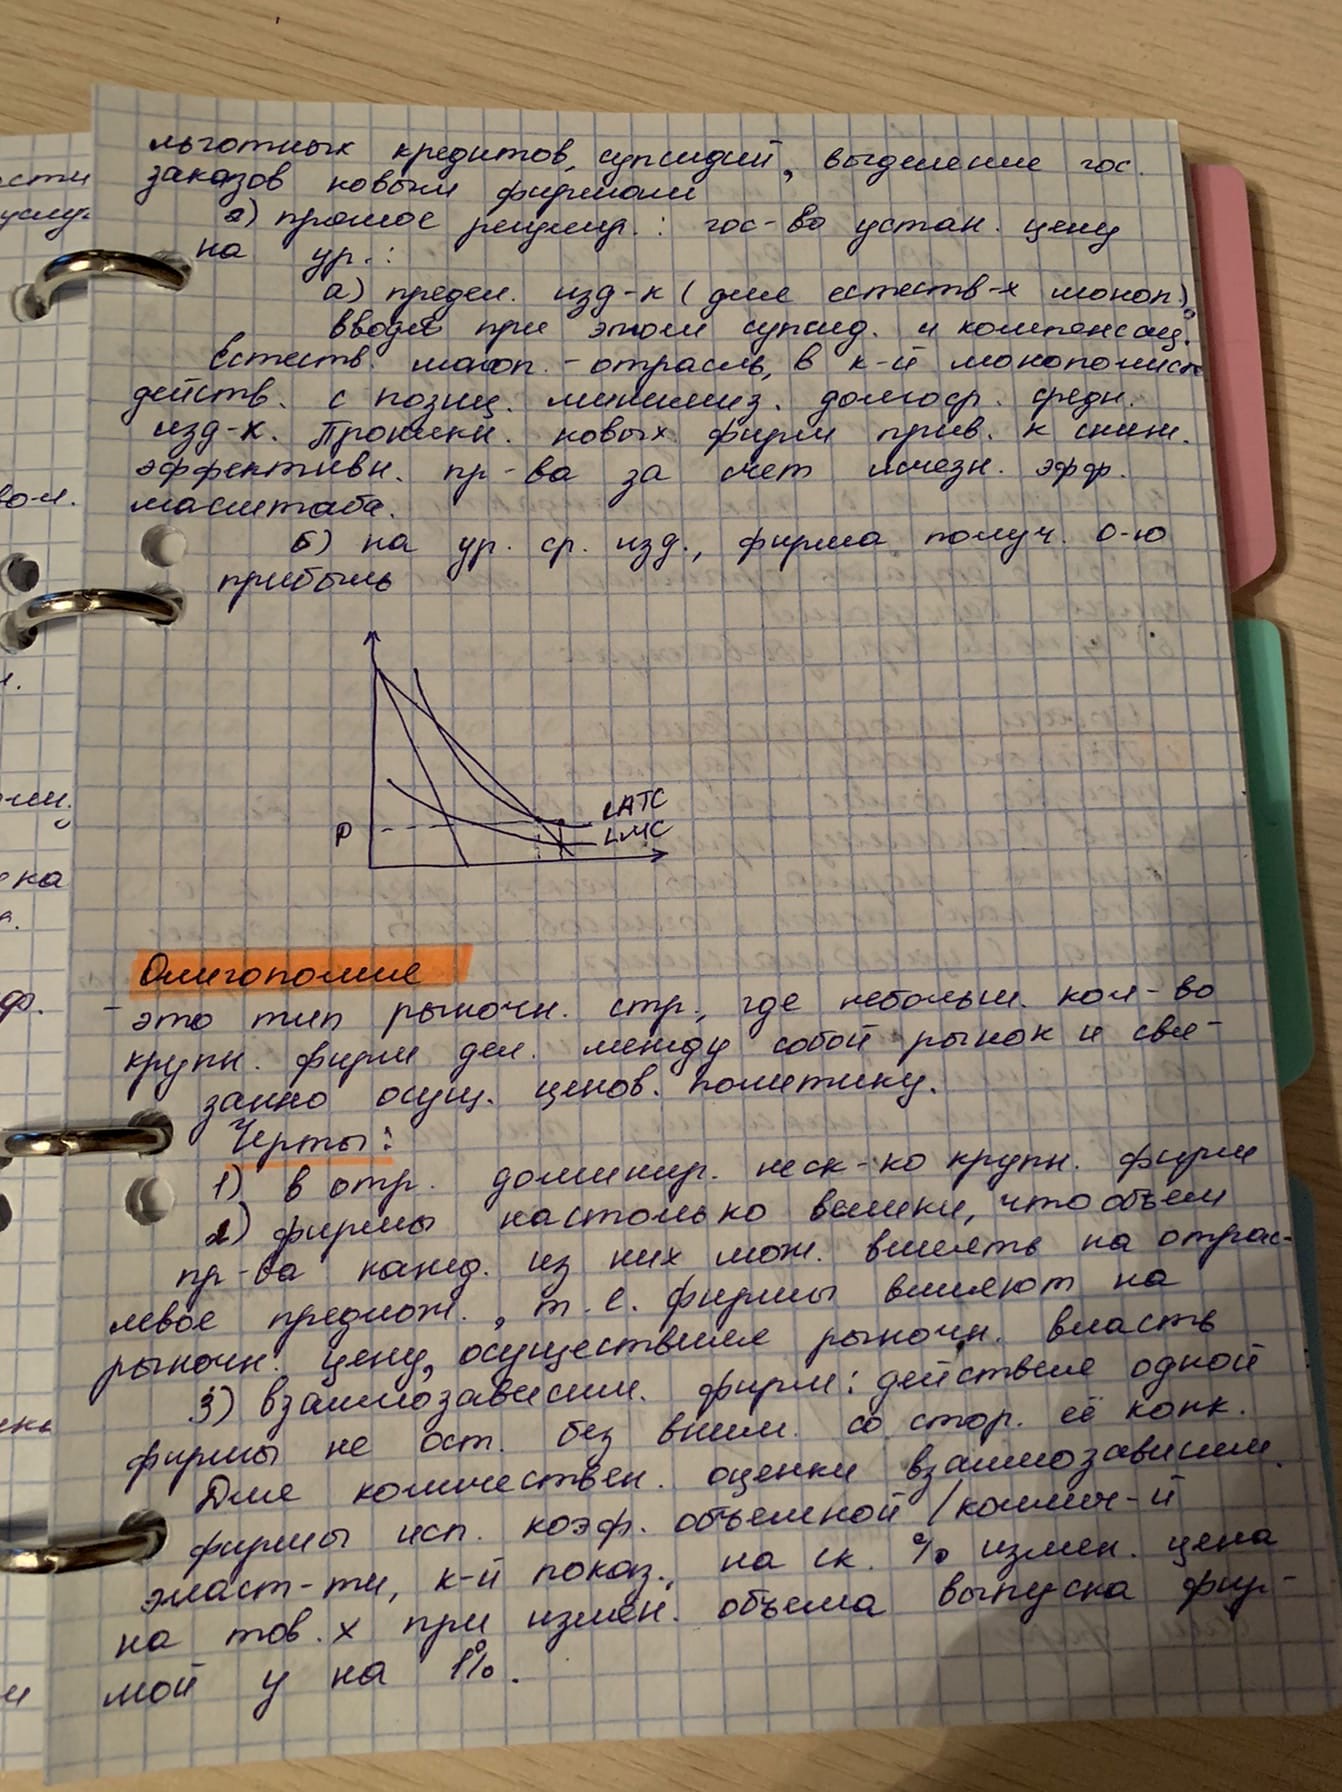 льготных кредитов, супсидий, выделение гос.
заказов новым фирмам
2) прямое регулир.: гос-во устан. цену
на ур.:
а) предел. изд-к (для естеств-х моноп),
вводя при этом супсид. и компенсац.
Естеств. моноп. - отрасль, в к-й монополист
действ. с позиц. минимиз. долгоср. средн.
изд-к. Проникн. новых фирм прив. к сниж.
эффективн. пр-ва за счет исчезн. эфф.
масштаба.
б) на ур. ср. изд., фирма получ. 0-ю
прибыль
LATC
P
LMC
Олигополия
- это тип рыночн. стр., где небольш. кол-во
крупн. фирм дел. между собой рынок и свя-
занно осущ. ценов. политику.
Черты:
1) в отр. доминир. неск-ко крупн. фирм
2) фирмы настолько велики, что объем
пр-ва кажд. из них мож. влиять на отрас-
левое предлож., т.е. фирмы влияют на
рыночн. цену, осуществляя рыночн. власть
3) взаимозависим. фирм: действие одной
фирмы не ост. без вним. со стор. её конк.
Для количествен. оценки взаимозависим.
фирмы исп. коэф. объемной /количе-й
эласт-ти, к-й показ., на ск. % измен. цена
на тов. х при измен. объема выпуска фир-
мой у на 1%.
ости
услуг
во-л.
на
ф.